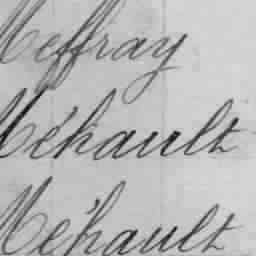 Meffray
Méhault
Méhault